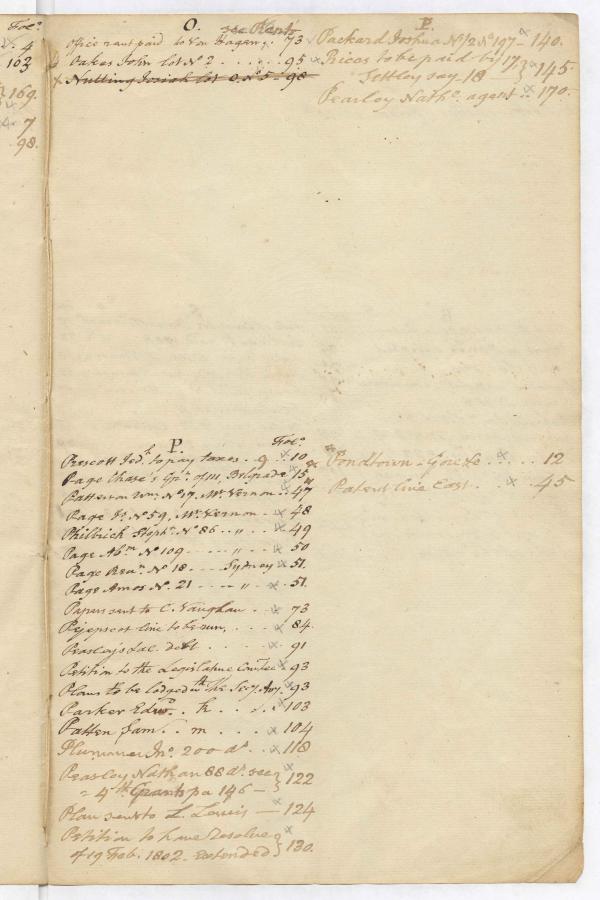 Fol.o
4
103
169
7
98.
O.
see Plants
office rent paid to Wm Hagen. 73
Oakes John lot No 2 . . . . . 95
Nutting Josiah lot O. No 5 - 98
P.
Packard Joshua N1/2 No 197 - 140.
Rices to be paid by 173
Settley say 18 } 145
Pearley Nath.l agent . 170.
P.
Fol.o
Prescott Jed.h to pay taxes . 9 . . 10
Page Chase's Gr. of m. Belgrade 15
Patterson Wm. No 17, Mt. Vernon . . 47
Page No 59, Mt. Vernon . . 48
Philbrick Steph.n No 86 . . " . . 49
Page Abm No 109 - - - - " . . 50
Page Reu.n No 18. - - - Sydney 51.
Page Amos No. 21 - - - " 51.
Papers sent to C. Vaughan . . 73
Pejepscot line to be run, . . . 84.
Peasley's Lac. debt . . . . 91
Petition to the Legislature 93
Plans to be lodged in the Secy. 93
Parker Edw. . h . . . . 103
Patten Sam. . m . . . . 104
Plummer Jno. 200 as. . . 118
Peasley Nathan 88 as. see
" 4th Grants pa 146 - } 122
Plan sent to L. Lewis — 124
Petition to have Resolve
of 19 Feb. 1802. extended } 130.
Pondtown - Gore &c . . . 12
Patent line East . . 45